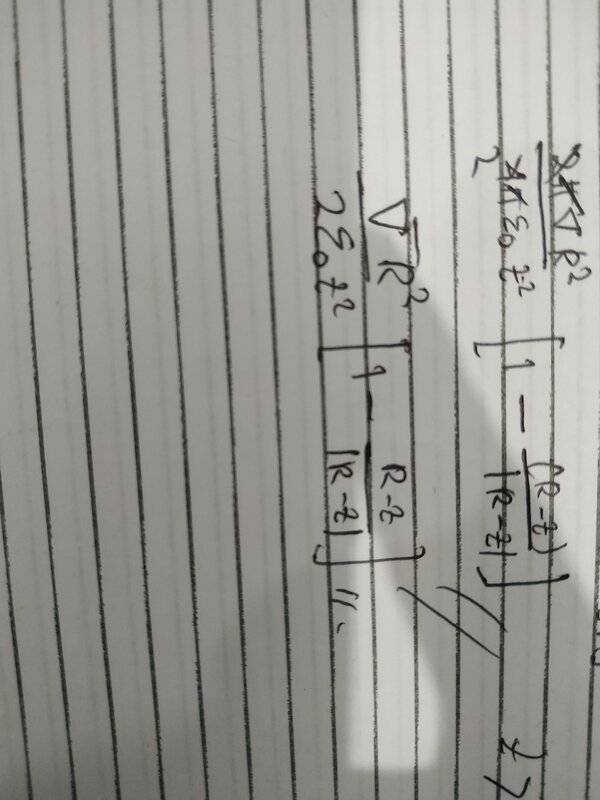 2πσR² / 4πε₀z² 2 [ 1 − (R-z) / |R-z| ] //
σR² / 2ε₀z² [ 1 − R-z / |R-z| ] //.